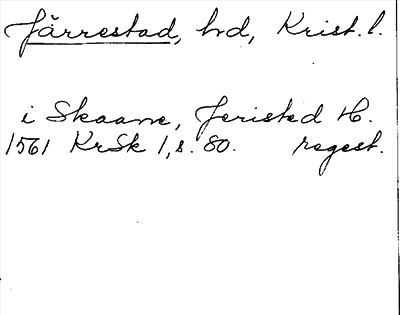 Järrestad, hd, Krist. l.
i Skaane, Jeristed H.
1561 KrSk 1, s. 80. regest.